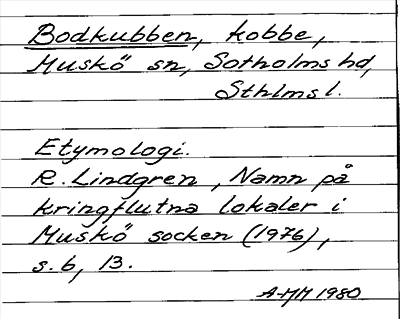 Bodkubben, kobbe,
Muskö sn, Sotholms hd,
Sthlms l.
Etymologi.
R. Lindgren, Namn på
kringflutna lokaler i
Muskö socken (1976),
s. 6, 13.
A-MH 1980